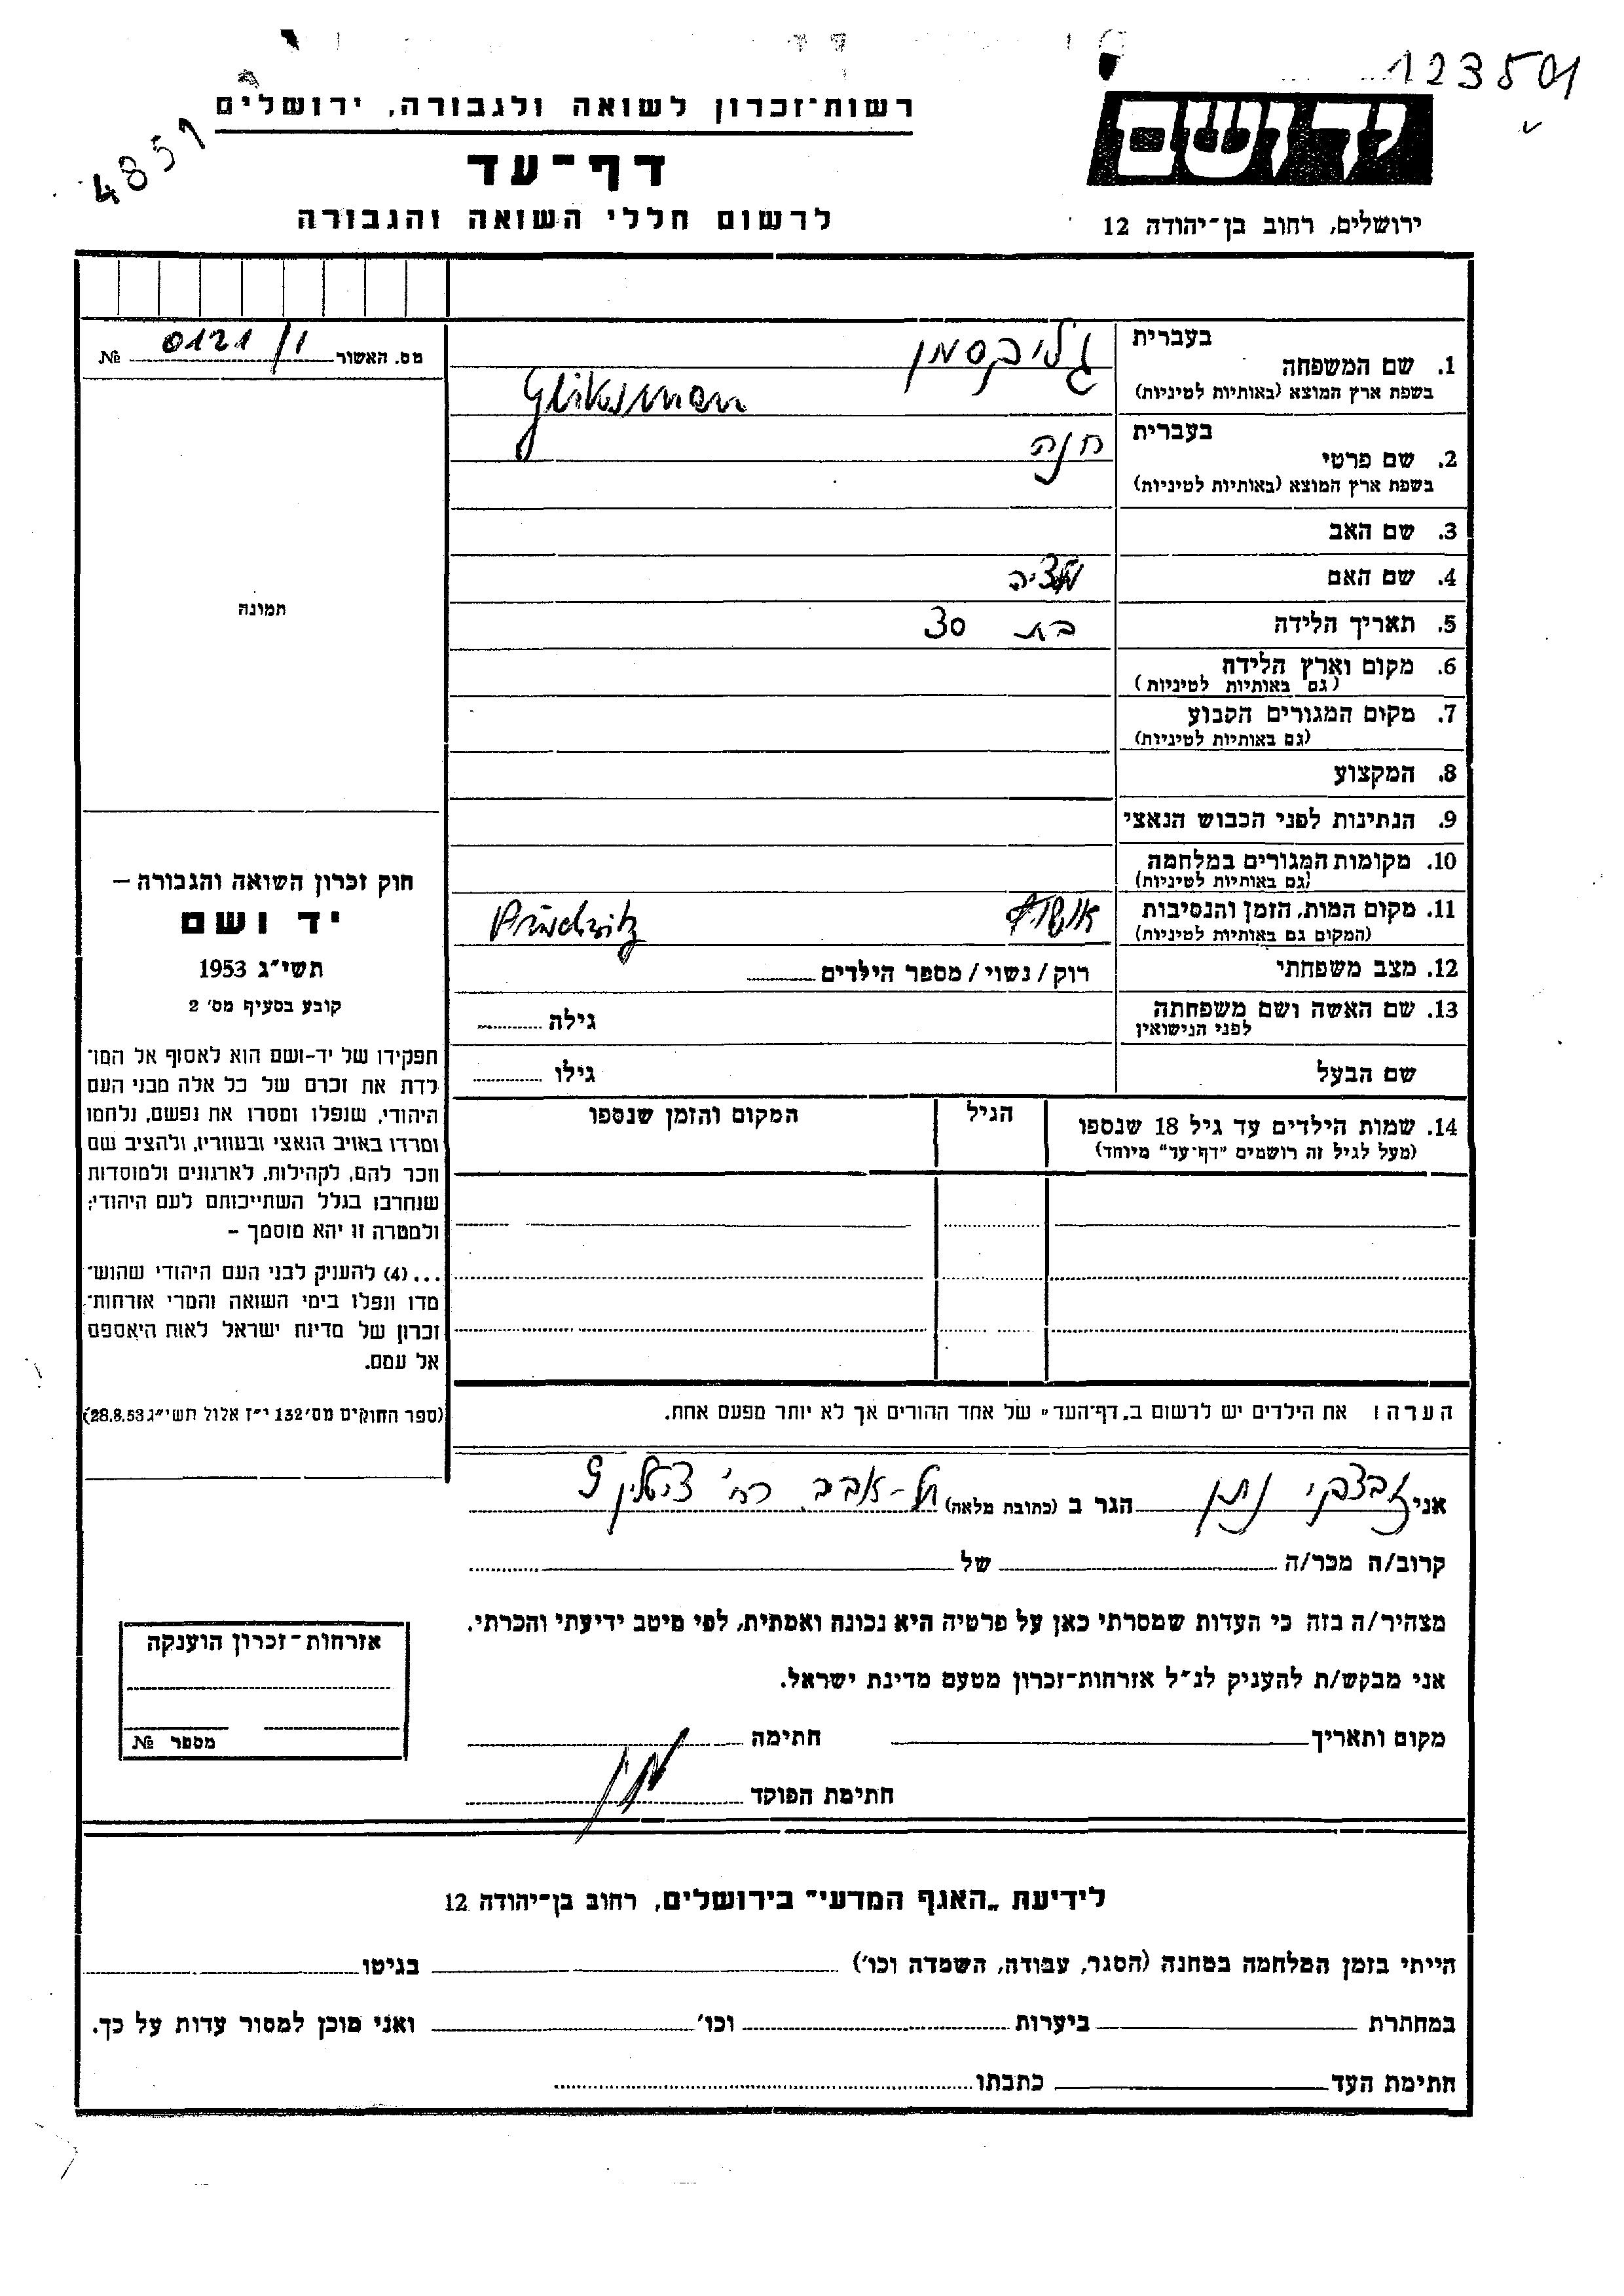 123501
4851
רשות־זכרון לשואה ולגבורה, ירושלים
יד ושם
דף־עד
לרשום חללי השואה והגבורה
ירושלים, רחוב בן־יהודה 12
מס. האשור № 0121/1
בעברית גליקסמן
1. שם המשפחה
בשפת ארץ המוצא (באותיות לטיניות) Gliksman
בעברית חנה
2. שם פרטי
בשפת ארץ המוצא (באותיות לטיניות)
3. שם האב
4. שם האם
5. תאריך הלידה בת 30
6. מקום וארץ הלידה
(גם באותיות לטיניות)
7. מקום המגורים הקבוע
(גם באותיות לטיניות)
8. המקצוע
9. הנתינות לפני הכבוש הנאצי
10. מקומות המגורים במלחמה
(גם באותיות לטיניות)
11. מקום המות, הזמן והנסיבות
(המקום גם באותיות לטיניות)
12. מצב משפחתי רוק / נשוי / מספר הילדים
13. שם האשה ושם משפחתה גילה
לפני הנישואין
שם הבעל גילו
14. שמות הילדים עד גיל 18 שנספו הגיל המקום והזמן שנספו
(מעל לגיל זה רושמים "דף־עד" מיוחד)
הערה: את הילדים יש לרשום ב„דף־העד" של אחד ההורים אך לא יותר מפעם אחת.
תמונה
חוק זכרון השואה והגבורה –
יד ושם
תשי״ג 1953
קובע בסעיף מס׳ 2
תפקידו של יד-ושם הוא לאסוף אל המו־
לדת את זכרם של כל אלה מבני העם
היהודי, שנפלו ומסרו את נפשם, נלחמו
ומרדו באויב הנאצי ובעוזריו, ולהציב שם
וזכר להם, לקהילות, לארגונים ולמוסדות
שנחרבו בגלל השתייכותם לעם היהודי;
ולמטרה זו יהא מוסמך –
...(4) להעניק לבני העם היהודי שהוש־
מדו ונפלו בימי השואה והמרי אזרחות־
זכרון של מדינת ישראל לאות היאספם
אל עמם.
(ספר החוקים מס׳ 132 י״ז אלול תשי״ג 28.8.53)
אני נתן הגר ב (כתובת מלאה) תל-אביב רח׳ 9
קרוב/ה מכר/ה של
מצהיר/ה בזה כי העדות שמסרתי כאן על פרטיה היא נכונה ואמתית, לפי מיטב ידיעתי והכרתי.
אני מבקש/ת להעניק לנ״ל אזרחות־זכרון מטעם מדינת ישראל.
מקום ותאריך חתימה
חתימת הפוקד
אזרחות־זכרון הוענקה
מספר №
לידיעת „האגף המדעי" בירושלים, רחוב בן־יהודה 12
הייתי בזמן המלחמה במחנה (הסגר, עבודה, השמדה וכו׳) בגיטו
במחתרת ביערות וכו׳ ואני מוכן למסור עדות על כך.
חתימת העד כתבתו